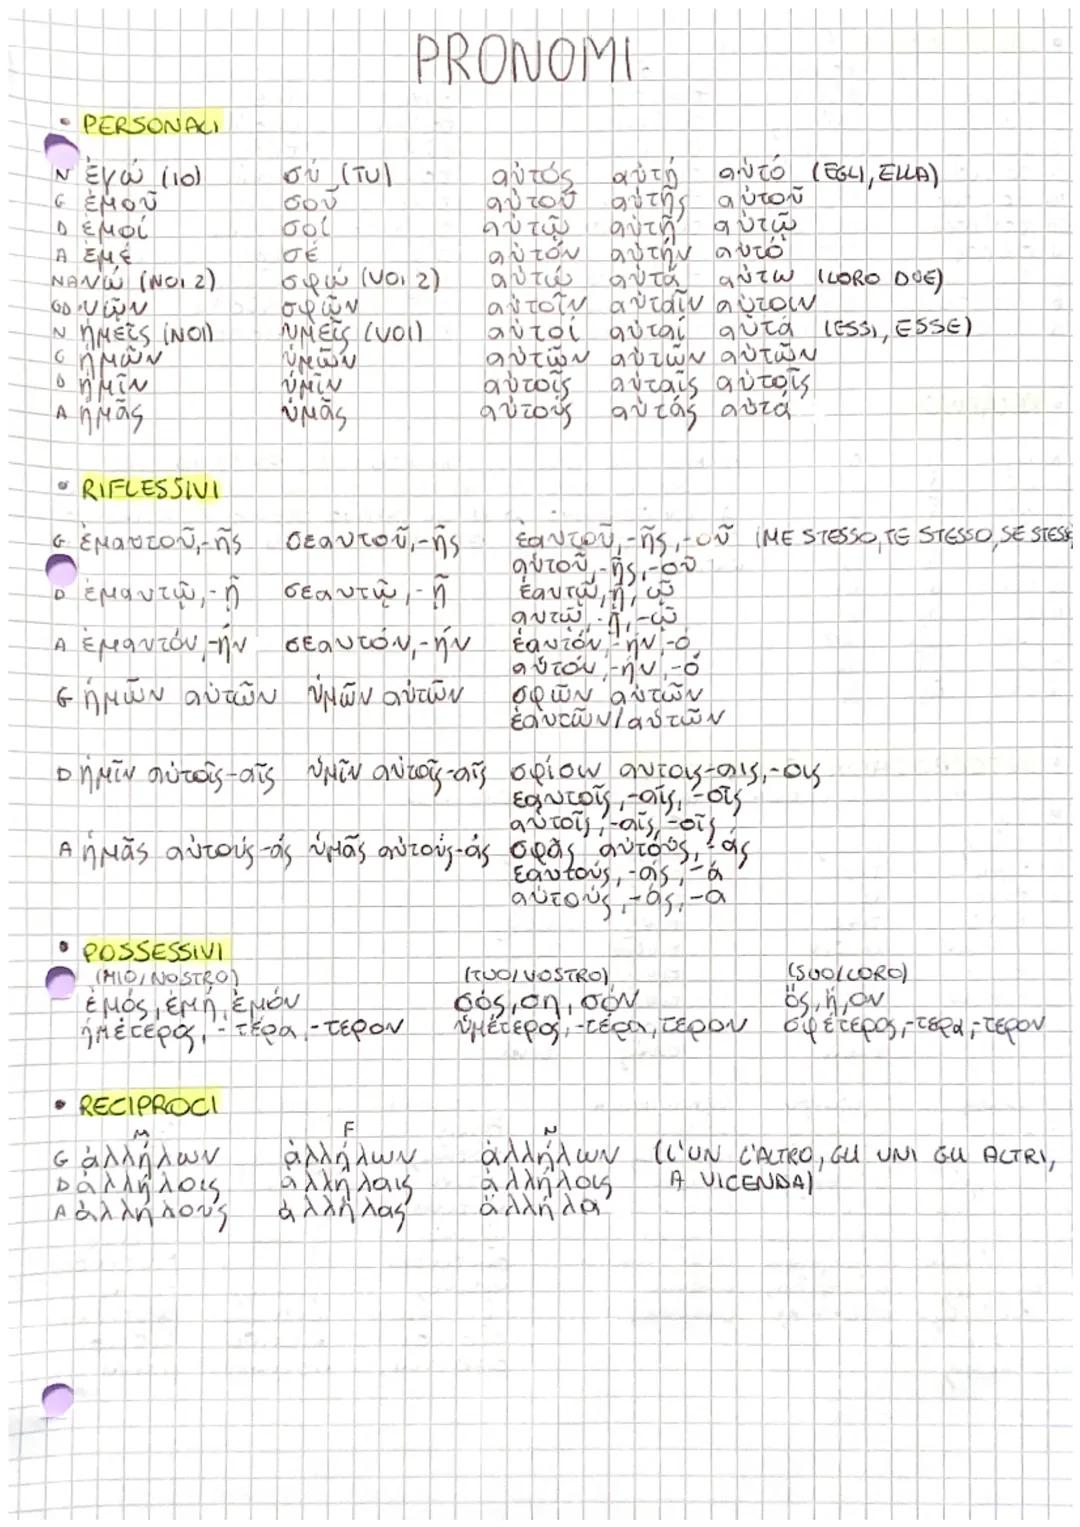 PRONOMI
• PERSONALI
N ἐγώ (IO) σύ (TU) αὐτός αὐτή αὐτό (EGLI, ELLA)
G ἐμοῦ σοῦ αὐτοῦ αὐτῆς αὐτοῦ
D ἐμοί σοί αὐτῷ αὐτῇ αὐτῷ
A ἐμέ σέ αὐτόν αὐτήν αὐτό
NA νώ (NOI 2) σφώ (VOI 2) αὐτώ αὐτά αὐτω (LORO DUE)
GD νῷν σφῷν αὐτοῖν αὐταῖν αὐτοιν
N ἡμεῖς (NOI) ὑμεῖς (VOI) αὐτοί αὐταί αὐτά (ESSI, ESSE)
G ἡμῶν ὑμῶν αὐτῶν αὐτῶν αὐτῶν
D ἡμῖν ὑμῖν αὐτοῖς αὐταῖς αὐτοῖς
A ἡμᾶς ὑμᾶς αὐτούς αὐτάς αὐτά
• RIFLESSIVI
G ἐμαυτοῦ,-ῆς σεαυτοῦ,-ῆς ἑαυτοῦ,-ῆς,-οῦ (ME STESSO, TE STESSO, SE STESS
αὑτοῦ,-ῆς,-οῦ
D ἐμαυτῷ,-ῇ σεαυτῷ,-ῇ ἑαυτῷ,ῇ,ῷ
αυτῷ,-ῇ,-ῷ
A ἐμαυτόν,-ήν σεαυτόν,-ήν ἑαυτόν,-ήν,-ό
αὑτόν,-ήν,-ό
G ἡμῶν αὐτῶν ὑμῶν αὐτῶν σφῶν αὐτῶν
ἑαυτῶν/αὑτῶν
D ἡμῖν αὐτοῖς-αῖς ὑμῖν αὐτοῖς-αῖς σφίσιν αυτοις-αις,-οις
ἑαυτοῖς,-αῖς,-οῖς
αὑτοῖς,-αῖς,-οῖς
A ἡμᾶς αὐτούς-άς ὑμᾶς αὐτούς-άς σφᾶς αὐτούς,-άς
ἑαυτούς,-άς,-ά
αὑτούς,-άς,-α
• POSSESSIVI
(MIO/NOSTRO) (TUO/VOSTRO) (SUO/LORO)
ἐμός, ἐμή, ἐμόν σός, ση, σόν ὅς, ἥ, ὅν
ἡμέτερος, -τέρα, -τερον ὑμέτερος, -τέρα, τερον σφέτερος,-τερα,-τερον
• RECIPROCI
M F N
G ἀλλήλων ἀλλήλων ἀλλήλων (L'UN L'ALTRO, GLI UNI GLI ALTRI,
D ἀλλήλοις ἀλλήλαις ἀλλήλοις A VICENDA)
A ἀλλήλους ἀλλήλας ἄλληλα